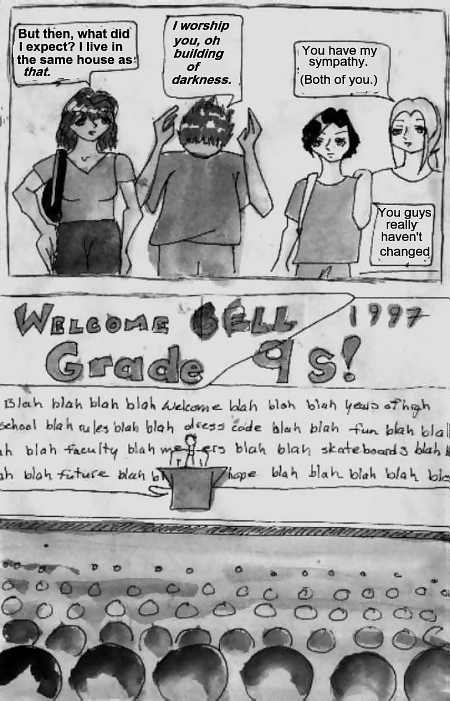 But then, what did
I expect? I live in
the same house as
that.
I worship
you, oh
building
of
darkness.
You have my
sympathy.
(Both of you.)
You guys
really
haven't
changed
WELCOME BELL 1997
Grade 9s!
Blah blah blah blah welcome blah blah blah years of high
school blah rules blah blah dress code blah blah fun blah blah
blah faculty blah blah blah skateboards blah
blah future blah hope blah blah blah blah